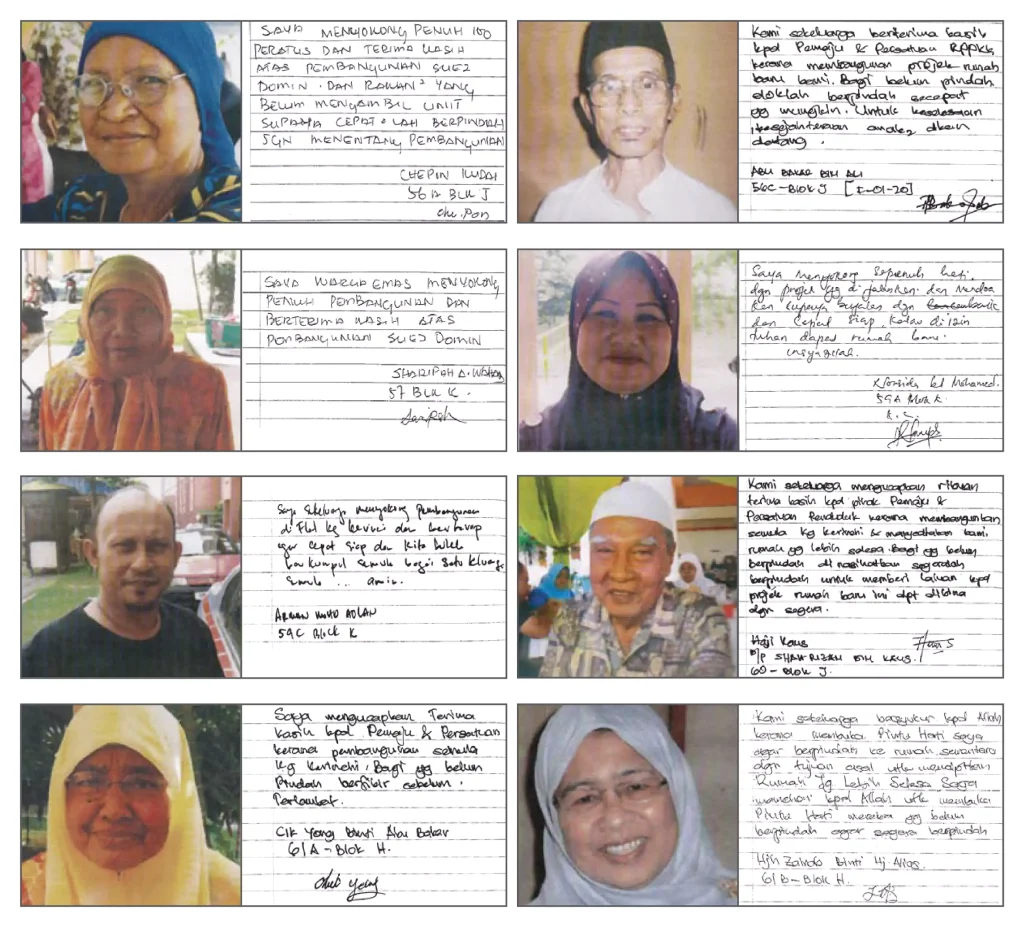 SAYA MENYOKONG PENUH 100
PERATUS DAN TERIMA KASIH
ATAS PEMBANGUNAN SUEZ
DOMIN. DAN KAWAN² YANG
BELUM MENGAMBIL UNIT
SUPAYA CEPAT-LAH BERPINDAH
JGN MENENTANG PEMBANGUNAN
CHEPIN KUDAI
56 A BLK J
Che. Pon
Kami sekeluarga berterima kasih
kpd Pemaju & Persatuan RPPKK
kerana membangunan projek rumah
baru kami. Bagi belum pindah
eloklah berpindah secepat
yg mungkin. Untuk keselesaan
kesejahteraan anak2 akan
datang.
ABU BAKAR BIN ALI
56C-BLOK J [I-01-20]
SAYA WARGA EMAS MENYOKONG
PENUH PEMBANGUNAN DAN
BERTERIMA KASIH ATAS
PEMBANGUNAN SUEZ DOMIN
SHARIPAH A. WAHAB
57 BLK K.
Saya menyokong sepenuh hati
dgn projek yg di jalankan dan mendoa
kan supaya berjalan dgn baik
dan cepat siap, kalau di izin
tuhan dapat rumah baru.
insyallah.
bt Mohamed.
59A Blok K
K.L.
Saya sekeluarga menyokong Pembangunan
di Flat kg kerinci dan berharap
agar cepat siap dan kita boleh
berkumpul semula bagai satu keluarga
semula ... amin.
ARMAN MOHD ADLAN
59C Block K
Kami sekeluarga mengucapkan ribuan
terima kasih kpd pihak Pemaju &
Persatuan Penduduk kerana membangunkan
semula kg Kerinchi & menyediakan kami
rumah yg lebih selesa. Bagi yg belum
berpindah di nasihatkan segeralah
berpindah untuk memberi laluan kpd
projek rumah baru ini dpt dibina
dgn segera.
Haji Kaus
B/P SHAH RIZAN BIN KAUS.
60 - Blok J.
Saya mengucapkan Terima
kasih kpd Pemaju & Persatuan
kerana pembangunan semula
kg Kerinchi. Bagi yg belum
Pindah berfikir sebelum.
Terlambat.
Cik Yong Binti Abu Bakar
61A - Blok H.
Kami sekeluarga bersyukur kpd Allah
kerana membuka Pintu Hati saya
agar berpindah ke rumah sementara
dgn tujuan asal utk mendptkan
Rumah Yg Lebih Selesa Saya
kpd Allah utk membuka
Pintu Hati mereka yg belum
berpindah agar segera berpindah
Hjh Zainab Binti Hj. Alias.
61B - Blok H.